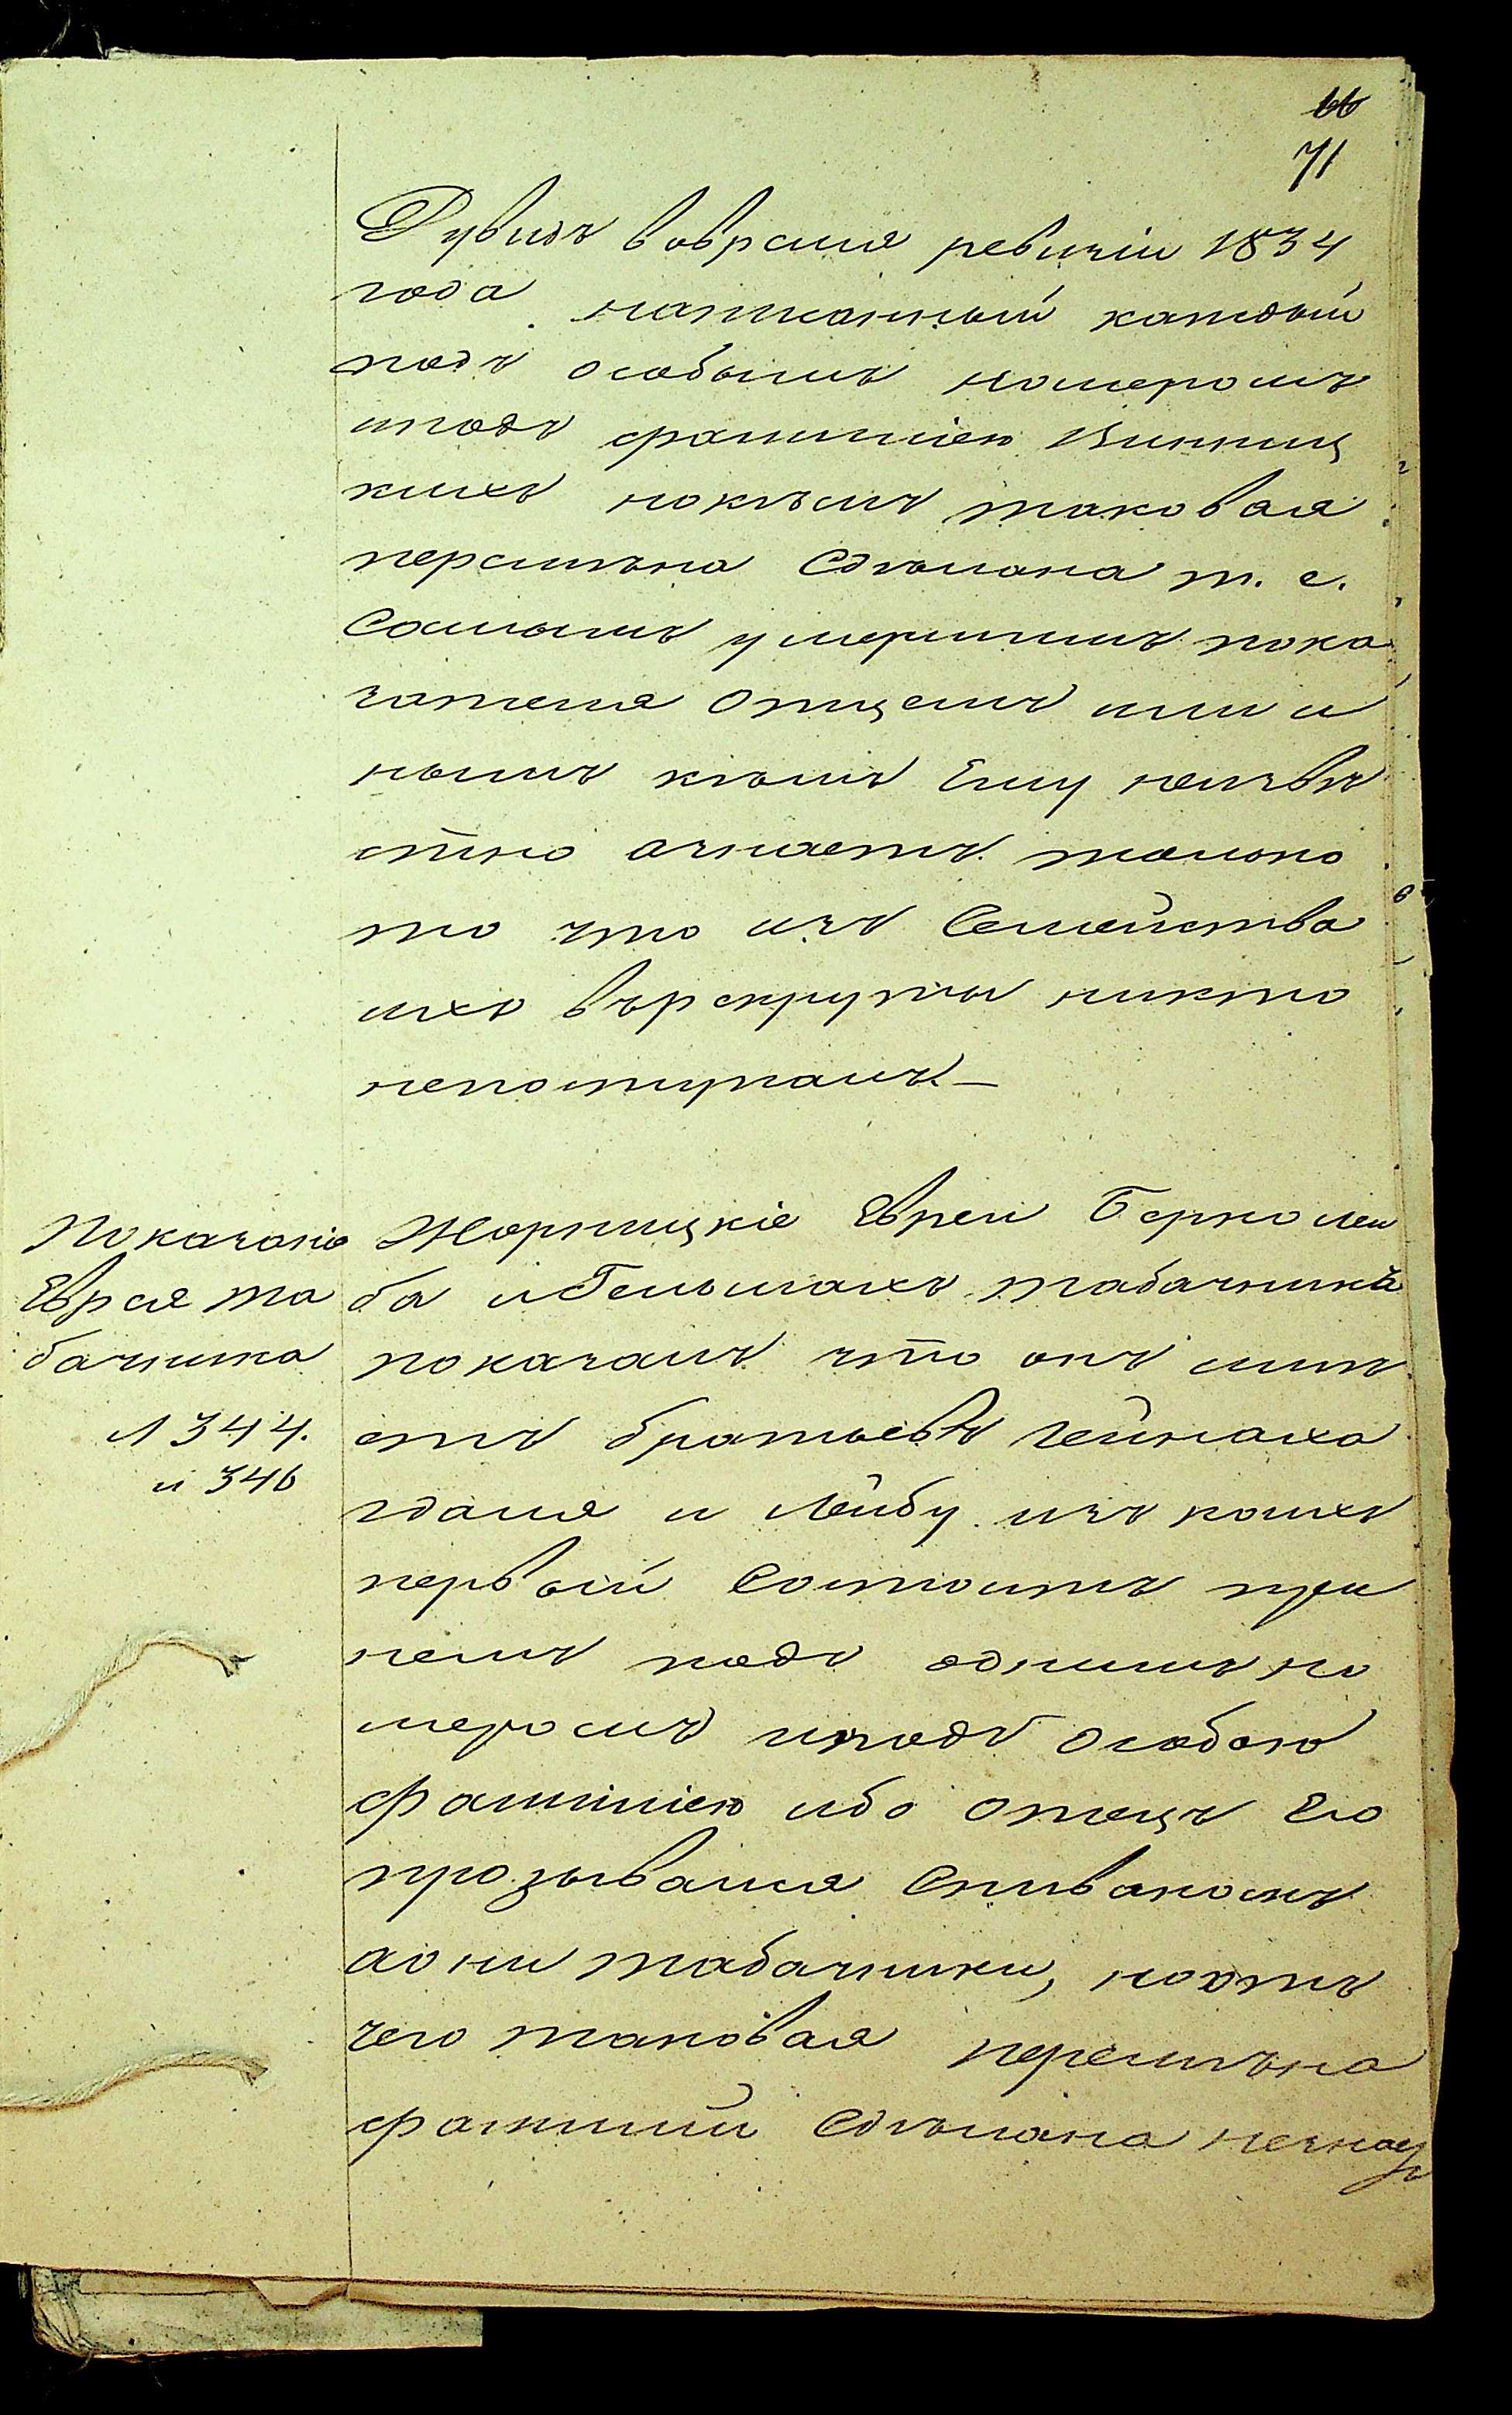 66
71
Дувидъ вовремя ревизіи 1834
года написанный каждый
подъ особымъ номеромъ
иподъ фамиліею Винниц
кихъ нокѣмъ таковая
перемѣна сдѣлана т. е.
самымъ умершимъ пока
зателя отцемъ или и
нымъ кѣмъ ему неизвѣ
стно азнаетъ только
то что изъ семейства
ихъ върекруты никто
непоступалъ –
Показаніе
Еврея Та
бачника
л 344.
и 346
Жорницкіе Евреи Берко Лей
ба и Гельмахъ Табачникъ
показалъ что онъ имѣ
етъ братьевъ Гейнаха
Эдаля и Лейбу изъ коихъ
первый состоитъ при
немъ подъ однимъ но
меромъ иподъ особою
фамиліею ибо отецъ его
прозывался Спивакомъ
аони Табачники, ноотъ
чего таковая перемѣна
фамилій сдѣлана незнаетъ